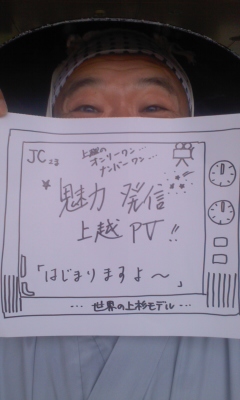 JC上越
上越の
オンリーワン…
ナンバーワン…
魅力 発信
上越PV!!
「はじまりますよ〜」
…世界の上杉モデル…